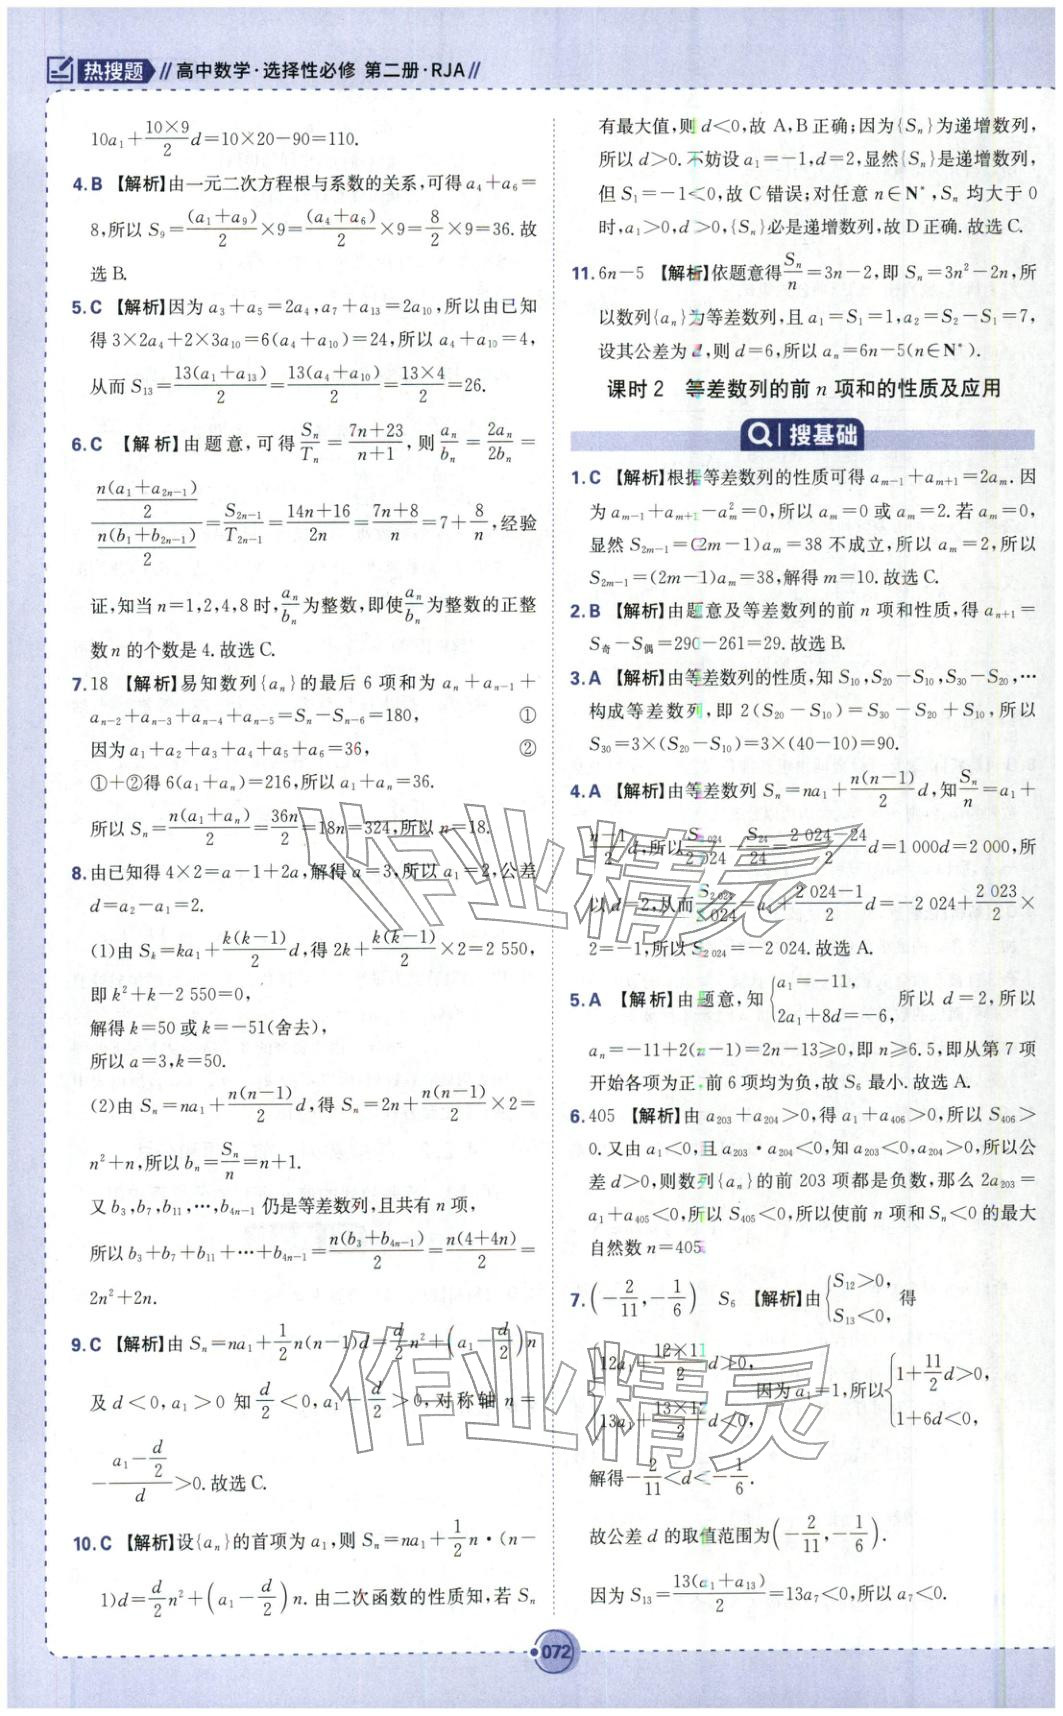 热搜题 // 高中数学·选择性必修 第二册·RJA //
10a₁+\frac{10×9}{2}d=10×20-90=110.
4.B 【解析】由一元二次方程根与系数的关系,可得 a₄+a₆=
8,所以 S₉=\frac{(a₁+a₉)}{2}×9=\frac{(a₄+a₆)}{2}×9=\frac{8}{2}×9=36.故
选 B.
5.C 【解析】因为 a₃+a₅=2a₄,a₇+a₁₃=2a₁₀,所以由已知
得 3×2a₄+2×3a₁₀=6(a₄+a₁₀)=24,所以 a₄+a₁₀=4,
从而 S₁₃=\frac{13(a₁+a₁₃)}{2}=\frac{13(a₄+a₁₀)}{2}=\frac{13×4}{2}=26.
6.C 【解析】由题意,可得\frac{Sₙ}{Tₙ}=\frac{7n+23}{n+1},则\frac{aₙ}{bₙ}=\frac{2aₙ}{2bₙ}=
\frac{\frac{n(a₁+a₂ₙ₋₁)}{2}}{\frac{n(b₁+b₂ₙ₋₁)}{2}}=\frac{S₂ₙ₋₁}{T₂ₙ₋₁}=\frac{14n+16}{2n}=\frac{7n+8}{n}=7+\frac{8}{n},经验
证,知当 n=1,2,4,8 时,\frac{aₙ}{bₙ}为整数,即使\frac{aₙ}{bₙ}为整数的正整
数 n 的个数是 4.故选 C.
7.18 【解析】易知数列{aₙ}的最后 6 项和为 aₙ+aₙ₋₁+
aₙ₋₂+aₙ₋₃+aₙ₋₄+aₙ₋₅=Sₙ-Sₙ₋₆=180, ①
因为 a₁+a₂+a₃+a₄+a₅+a₆=36, ②
①+②得 6(a₁+aₙ)=216,所以 a₁+aₙ=36.
所以 Sₙ=\frac{n(a₁+aₙ)}{2}=\frac{36n}{2}=18n=324,所以 n=18.
8.由已知得 4×2=a-1+2a,解得 a=3,所以 a₁=2,公差
d=a₂-a₁=2.
(1)由 Sₖ=ka₁+\frac{k(k-1)}{2}d,得 2k+\frac{k(k-1)}{2}×2=2 550,
即 k²+k-2 550=0,
解得 k=50 或 k=-51(舍去),
所以 a=3,k=50.
(2)由 Sₙ=na₁+\frac{n(n-1)}{2}d,得 Sₙ=2n+\frac{n(n-1)}{2}×2=
n²+n,所以 bₙ=\frac{Sₙ}{n}=n+1.
又 b₃,b₇,b₁₁,…,b₄ₙ₋₁ 仍是等差数列,且共有 n 项,
所以 b₃+b₇+b₁₁+…+b₄ₙ₋₁=\frac{n(b₃+b₄ₙ₋₁)}{2}=\frac{n(4+4n)}{2}=
2n²+2n.
9.C 【解析】由 Sₙ=na₁+\frac{1}{2}n(n-1)d=\frac{d}{2}n²+(a₁-\frac{d}{2})n
及 d<0,a₁>0 知\frac{d}{2}<0,a₁-\frac{d}{2}>0,对称轴 n=
-\frac{a₁-\frac{d}{2}}{d}>0.故选 C.
10.C 【解析】设{aₙ}的首项为 a₁,则 Sₙ=na₁+\frac{1}{2}n·(n-
1)d=\frac{d}{2}n²+(a₁-\frac{d}{2})n.由二次函数的性质知,若 Sₙ
有最大值,则 d<0,故 A,B 正确;因为{Sₙ}为递增数列,
所以 d>0.不妨设 a₁=-1,d=2,显然{Sₙ}是递增数列,
但 S₁=-1<0,故 C 错误;对任意 n∈N*,Sₙ 均大于 0
时,a₁>0,d>0,{Sₙ}必是递增数列,故 D 正确.故选 C.
11.6n-5 【解析】依题意得\frac{Sₙ}{n}=3n-2,即 Sₙ=3n²-2n,所
以数列{aₙ}为等差数列,且 a₁=S₁=1,a₂=S₂-S₁=7,
设其公差为 d,则 d=6,所以 aₙ=6n-5(n∈N*).
课时 2 等差数列的前 n 项和的性质及应用
搜基础
1.C 【解析】根据等差数列的性质可得 aₘ₋₁+aₘ₊₁=2aₘ.因
为 aₘ₋₁+aₘ₊₁-aₘ²=0,所以 aₘ=0 或 aₘ=2.若 aₘ=0,
显然 S₂ₘ₋₁=(2m-1)aₘ=38 不成立,所以 aₘ=2,所以
S₂ₘ₋₁=(2m-1)aₘ=38,解得 m=10.故选 C.
2.B 【解析】由题意及等差数列的前 n 项和性质,得 aₙ₊₁=
S奇-S偶=290-261=29.故选 B.
3.A 【解析】由等差数列的性质,知 S₁₀,S₂₀-S₁₀,S₃₀-S₂₀,…
构成等差数列,即 2(S₂₀-S₁₀)=S₃₀-S₂₀+S₁₀,所以
S₃₀=3×(S₂₀-S₁₀)=3×(40-10)=90.
4.A 【解析】由等差数列 Sₙ=na₁+\frac{n(n-1)}{2}d,知\frac{Sₙ}{n}=a₁+
\frac{n-1}{2}d,所以\frac{S₂ ₀₂₄}{2 024}-\frac{S₂₄}{24}=\frac{2 024-24}{2}d=1 000d=2 000,所
以 d=2,从而\frac{S₂ ₀₂₄}{2 024}=a₁+\frac{2 024-1}{2}d=-2 024+\frac{2 023}{2}×
2=-1,所以 S₂ ₀₂₄=-2 024.故选 A.
5.A 【解析】由题意,知{a₁=-11, 2a₁+8d=-6, 所以 d=2,所以
aₙ=-11+2(n-1)=2n-13≥0,即 n≥6.5,即从第 7 项
开始各项为正,前 6 项均为负,故 S₆ 最小.故选 A.
6.405 【解析】由 a₂₀₃+a₂₀₄>0,得 a₁+a₄₀₆>0,所以 S₄₀₆>
0.又由 a₁<0,且 a₂₀₃·a₂₀₄<0,知 a₂₀₃<0,a₂₀₄>0,所以公
差 d>0,则数列{aₙ}的前 203 项都是负数,那么 2a₂₀₃=
a₁+a₄₀₅<0,所以 S₄₀₅<0,所以使前 n 项和 Sₙ<0 的最大
自然数 n=405.
7.(-\frac{2}{11},-\frac{1}{6}) S₆ 【解析】由{S₁₂>0, S₁₃<0, 得
{12a₁+\frac{12×11}{2}d>0, 13a₁+\frac{13×12}{2}d<0, 因为 a₁=1,所以{1+\frac{11}{2}d>0, 1+6d<0,
解得-\frac{2}{11}<d<-\frac{1}{6}.
故公差 d 的取值范围为(-\frac{2}{11},-\frac{1}{6}).
因为 S₁₃=\frac{13(a₁+a₁₃)}{2}=13a₇<0,所以 a₇<0.
072
作业精灵
作业精灵